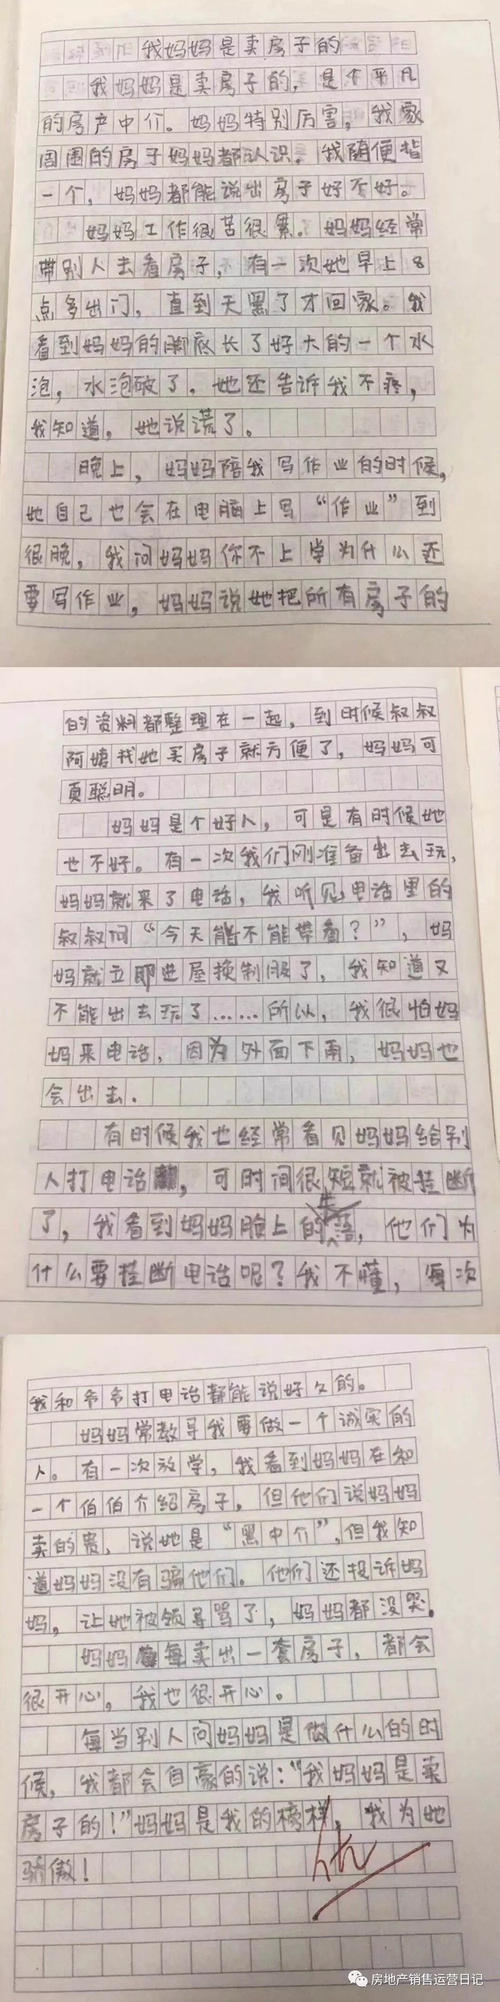 我妈妈是卖房子的
我妈妈是卖房子的，是个平凡
的房产中介。妈妈特别厉害，我家
周围的房子妈妈都认识。我随便指
一个，妈妈都能说出房子好不好。
妈妈工作很苦很累。妈妈经常
带别人去看房子，有一次她早上8
点多出门，直到天黑了才回家。我
看到妈妈的脚底长了好大的一个水
泡，水泡破了，她还告诉我不疼，
我知道，她说谎了。
晚上，妈妈陪我写作业的时候，
她自己也会在电脑上写“作业”到
很晚，我问妈妈你不上学为什么还
要写作业，妈妈说她把所有房子的
的资料都整理在一起，到时候叔叔
阿姨找她买房子就方便了，妈妈可
真聪明。
妈妈是个好人，可是有时候她
也不好。有一次我们刚准备出去玩，
妈妈就来了电话，我听见电话里的
叔叔问“今天能不能带看？”，妈
妈就立即进屋换制服了，我知道又
不能出去玩了……所以，我很怕妈
妈来电话，因为外面下雨，妈妈也
会出去.
有时候我也经常看见妈妈给别
人打电话，可时间很短就被挂断
了，我看到妈妈脸上的失落，他们为
什么要挂断电话呢？我不懂，每次
我和爷爷打电话都能说好久的。
妈妈常教导我要做一个诚实的
人。有一次放学，我看到妈妈在和
一个伯伯介绍房子，但他们说妈妈
卖的贵，说她是“黑中介”，但我知
道妈妈没有骗他们。他们还投诉妈
妈，让她被领导骂了，妈妈都没哭。
妈妈每卖出一套房子，都会
很开心，我也很开心。
每当别人问妈妈是做什么的时
候，我都会自豪的说：“我妈妈是卖
房子的！”妈妈是我的榜样，我为她
骄傲！
优
房地产销售运营日记